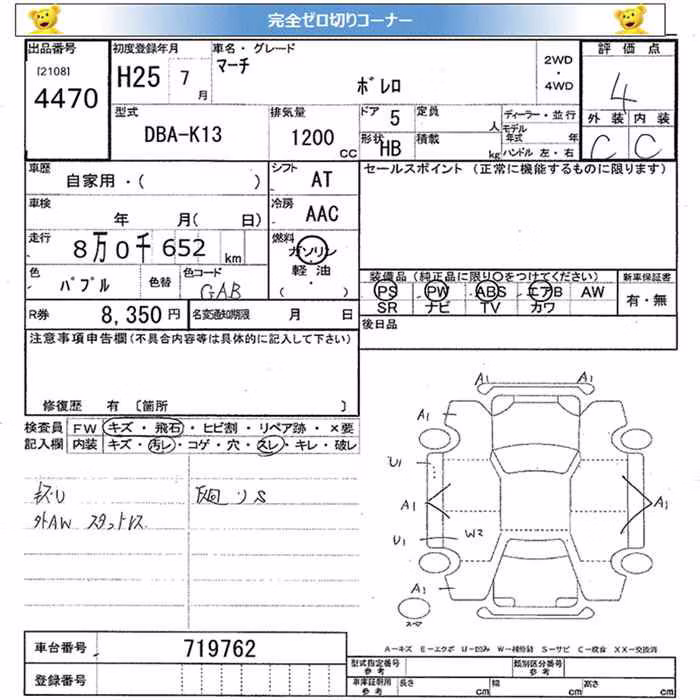 完全ゼロ切りコーナー
出品番号 初度登録年月 車名・グレード 評価点
[2108] マーチ 2WD
4470 H25 7月 ボレロ ・4WD 4
型式 排気量 ドア 5 定員 人 ディーラー・並行 外装 内装
DBA-K13 1200 CC 形状 HB 積載 kg モデル年式 年 ハンドル 左・右 C C
車歴 自家用・( ) シフト AT セールスポイント (正常に機能するものに限ります)
車検 年 月( 日) 冷房 AAC
走行 8万0千652 km 燃料 ガソリン
軽油
・( )
色 パプル 色替 色コード GAB
装備品 (純正品に限り○をつけてください) 新車保証書
PS PW ABS エアB AW 有・無
SR ナビ TV カワ
R券 8,350円 名変通知期限 月 日 後日品
注意事項申告欄(不具合内容等は具体的に記入して下さい)
修復歴 有 〔箇所 〕
検査員 FW キズ・飛石・ヒビ割・リペア跡・×要
記入欄 内装 キズ・汚レ・コゲ・穴・スレ・キレ・破レ
A1 A1
A1 A1
U1
A1 A1
U1 W2
A1 A1
外AW スタットレス
車台番号 719762
登録番号
A-キズ E-エクボ U-凹み W-補修跡 S-サビ C-腐食 XX-交換済
型式指定番号 参考 類別区分番号 参考
車庫証明用 参考 長さ cm 幅 cm 高さ cm